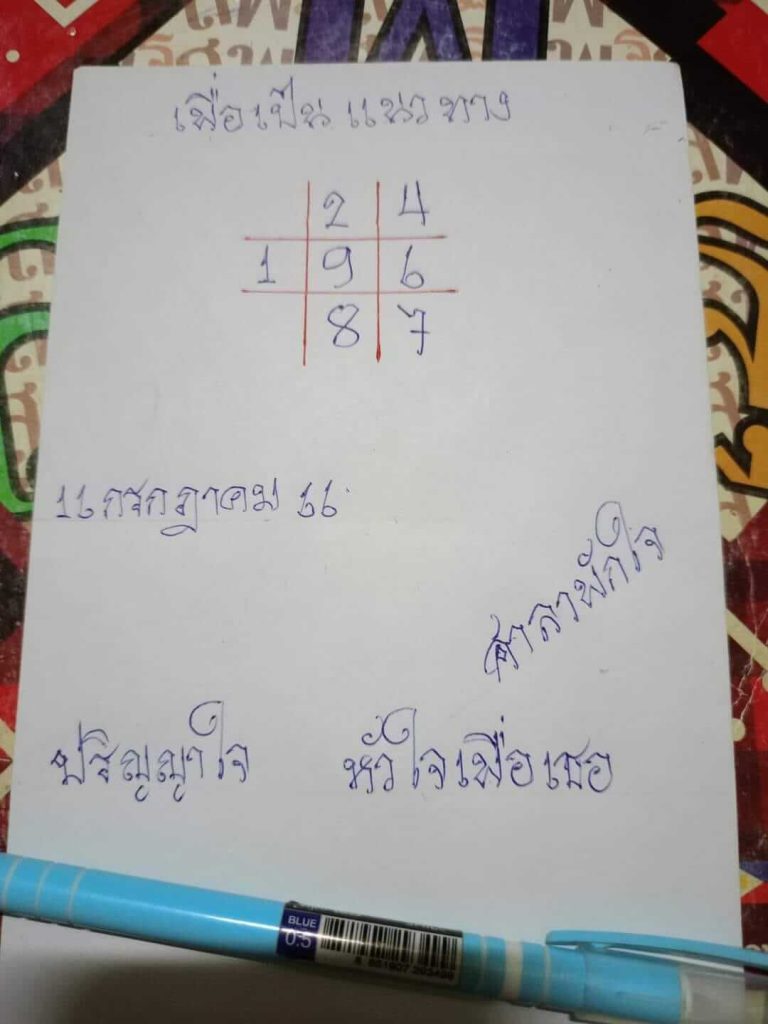 เพื่อเป็นแนวทาง
2 4
1 9 6
8 7
16 กรกฎาคม 66
ศาลาพักใจ
ปริญญาใจ หัวใจเพื่อเธอ
BLUE
0.5